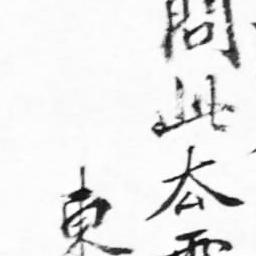 問此太
東